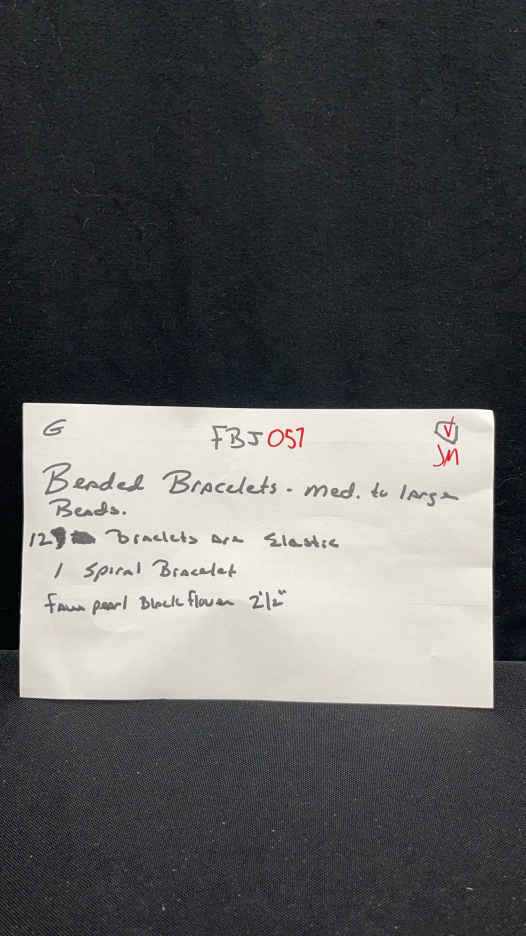 G
FBJ 057
JM
Beaded Bracelets - med. to large
Beads.
12 Braclets are Elastic
1 Spiral Bracelet
faux pearl Black flower 2 1/2"